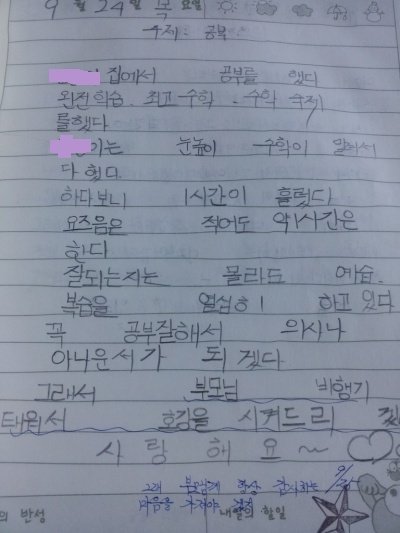 9월 24일 목요일
주제: 공부
집에서 공부를 했다
완전학습. 최고수학. 수학 숙제
를했다
이는 눈높이 수학이 밀려서
다 했다.
하다보니 1시간이 흘렀다
요즈음은 적어도 약1시간은
한다
잘되는지는 몰라도 예습.
복습을 열심히 하고 있다
꼭 공부잘해서 의사나
아나운서가 되겠다
그래서 부모님 비행기
태워서 호강을 시켜드리
사랑해요~
그래 부모님께 항상 감사하는
마음을 가져야
의 반성 내일의 할일